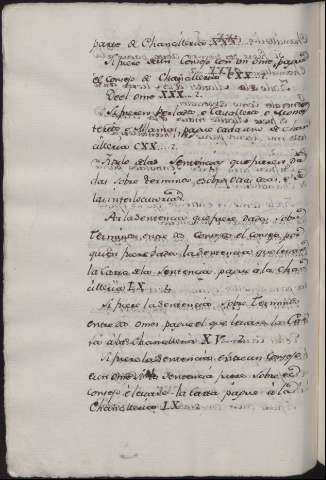 parte de Chancilleria XXX
Si fuere de un Consejo con un ome, pague
el Consejo de Chancilleria CXX
De el ome XXX
Si fueren Perlado, e Cavallero, e Monas
terio, e Alcaide, pague cada uno de chan
cilleria CXX
Titulo de las Sentencias que fueren da
das sobre terminos, e sobre otras cosas, e de
las interlocutorias
A la Sentencia que fuere dada sobre
Terminos entre dos Consejos el consejo por
quien fuere dada la Sentencia que levare
la Carta de la Sentencia pague a la Chan
cilleria LX
Si fuere la Sentencia sobre Terminos
entre dos omes pague el que levare la Car
ta a la Chancilleria XV
Si fuere la Sentencia entre un Consejo
e un ome, si la Sentencia fuere sobre el
Consejo e levare la Carta pague a la
Chancilleria LX